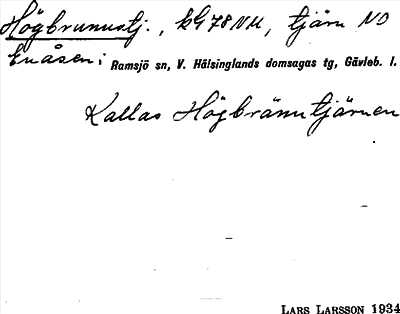 Högbrunnstj., kG 78 NM, tjärn NO
Enåsen; Ramsjö sn, V. Hälsinglands domsagas tg, Gävleb. l.
Kallas Högbränntjärnen
LARS LARSSON 1934